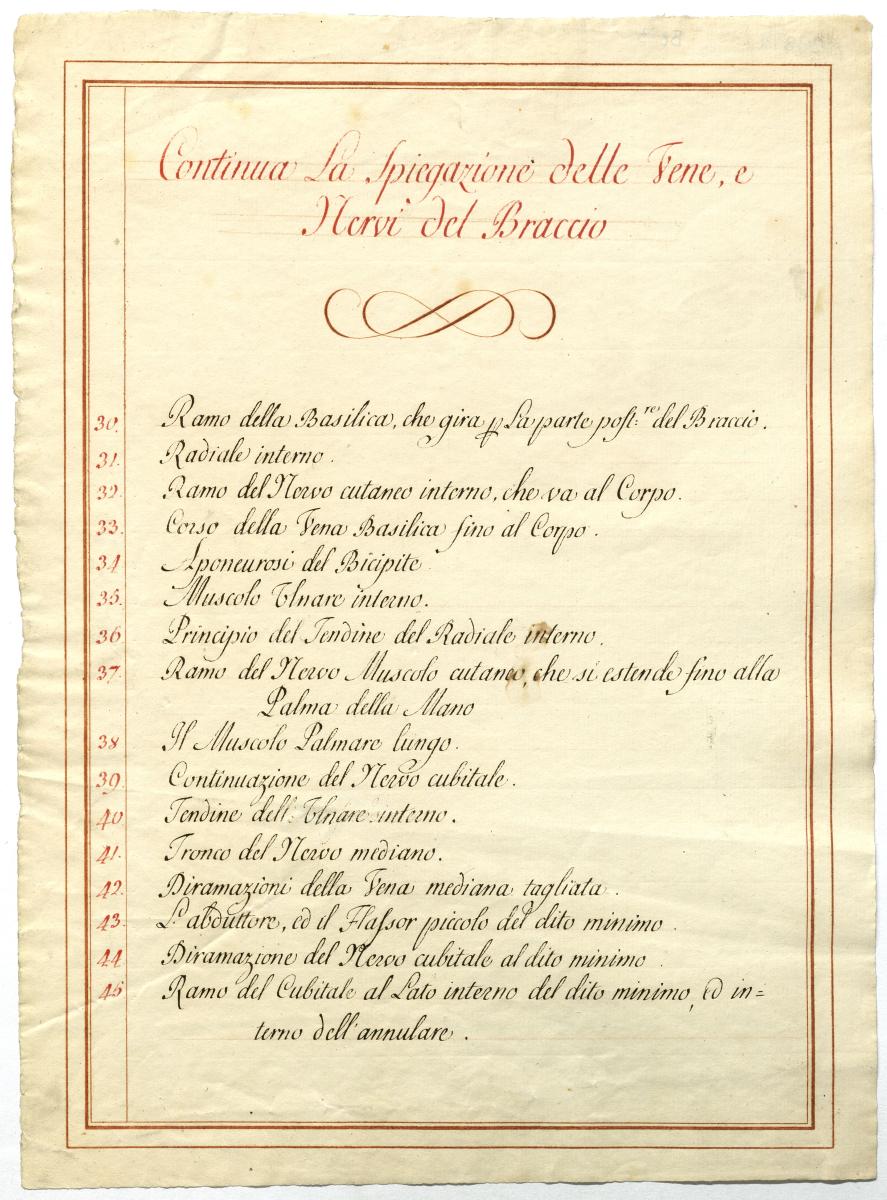 Continua La Spiegazione delle Vene, e
Nervi del Braccio
30. Ramo della Basilica, che gira p La parte post:re del Braccio.
31. Radiale interno.
32. Ramo del Nervo cutaneo interno, che va al Corpo.
33. Corso della Vena Basilica fino al Corpo.
34 Aponeurosi del Bicipite
35. Muscolo Ulnare interno.
36 Principio del Tendine del Radiale interno.
37. Ramo del Nervo Muscolo cutaneo, che si estende fino alla
Palma della Mano
38 Il Muscolo Palmare lungo.
39. Continuazione del Nervo cubitale.
40 Tendine dell'Ulnare interno.
41. Tronco del Nervo mediano.
42. Diramazioni della Vena mediana tagliata.
43. L'abduttore, ed il Flassor piccolo del dito minimo.
44 Diramazione del Nervo cubitale al dito minimo.
45 Ramo del Cubitale al Lato interno del dito minimo, ed in=
terno dell'annulare.